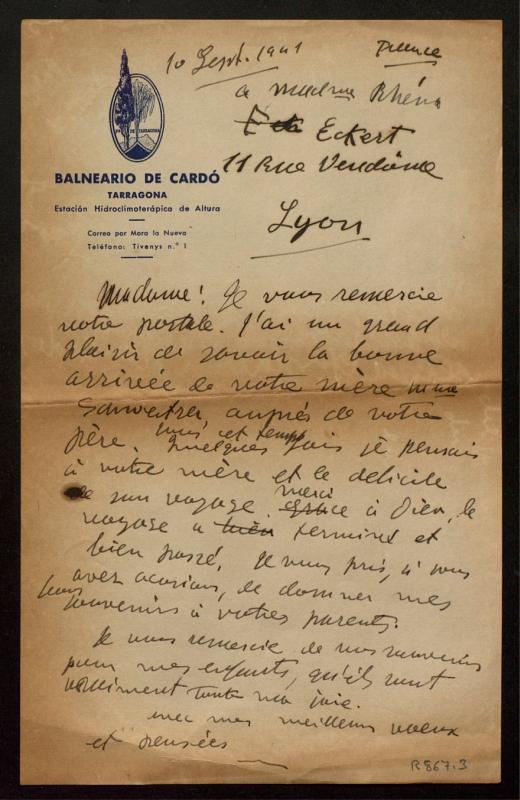 10 Sept. 1941
France
a madame Rhéna
Eckert
11 Rue Vendôme
Lyon
DE TARRAGONA
BALNEARIO DE CARDÓ
TARRAGONA
Estación Hidroclimoterápica de Altura
Correo por Mora la Nueva
Teléfono: Tivenys n.º 1
Madame! Je vous remercie
votre postale. J'ai un grand
plaisir de savoir la bonne
arrivée de votre mère Mme
Schweitzer auprés de votre
père. Quelques fois je pensais
à votre mère et le delicile
de son voyage. merci à Dieu, le
voyage a bien terminé et
bien passé. Je vous pris, si vous
avez ocasion, de donner mes
bons souvenirs à votres parents.
Je vous remercie de vos souvenirs
pour mes enfants, qu'ils sont
vraiment toute ma joie.
avec mes meilleurs voeux
et pensées
R 867.3